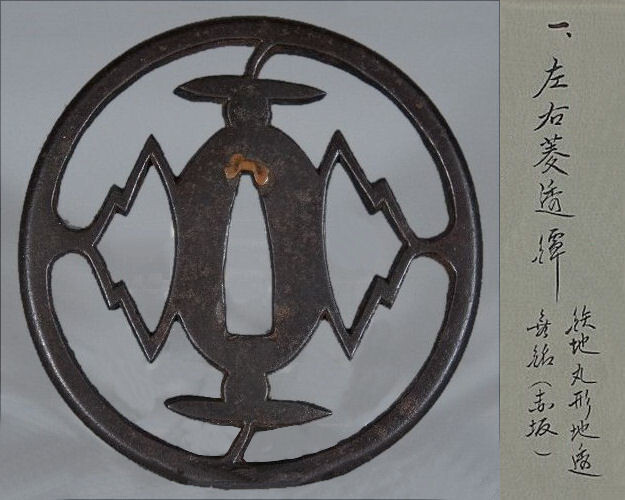 一、左右菱透鐔
鉄地丸形地透
無銘（赤坂）